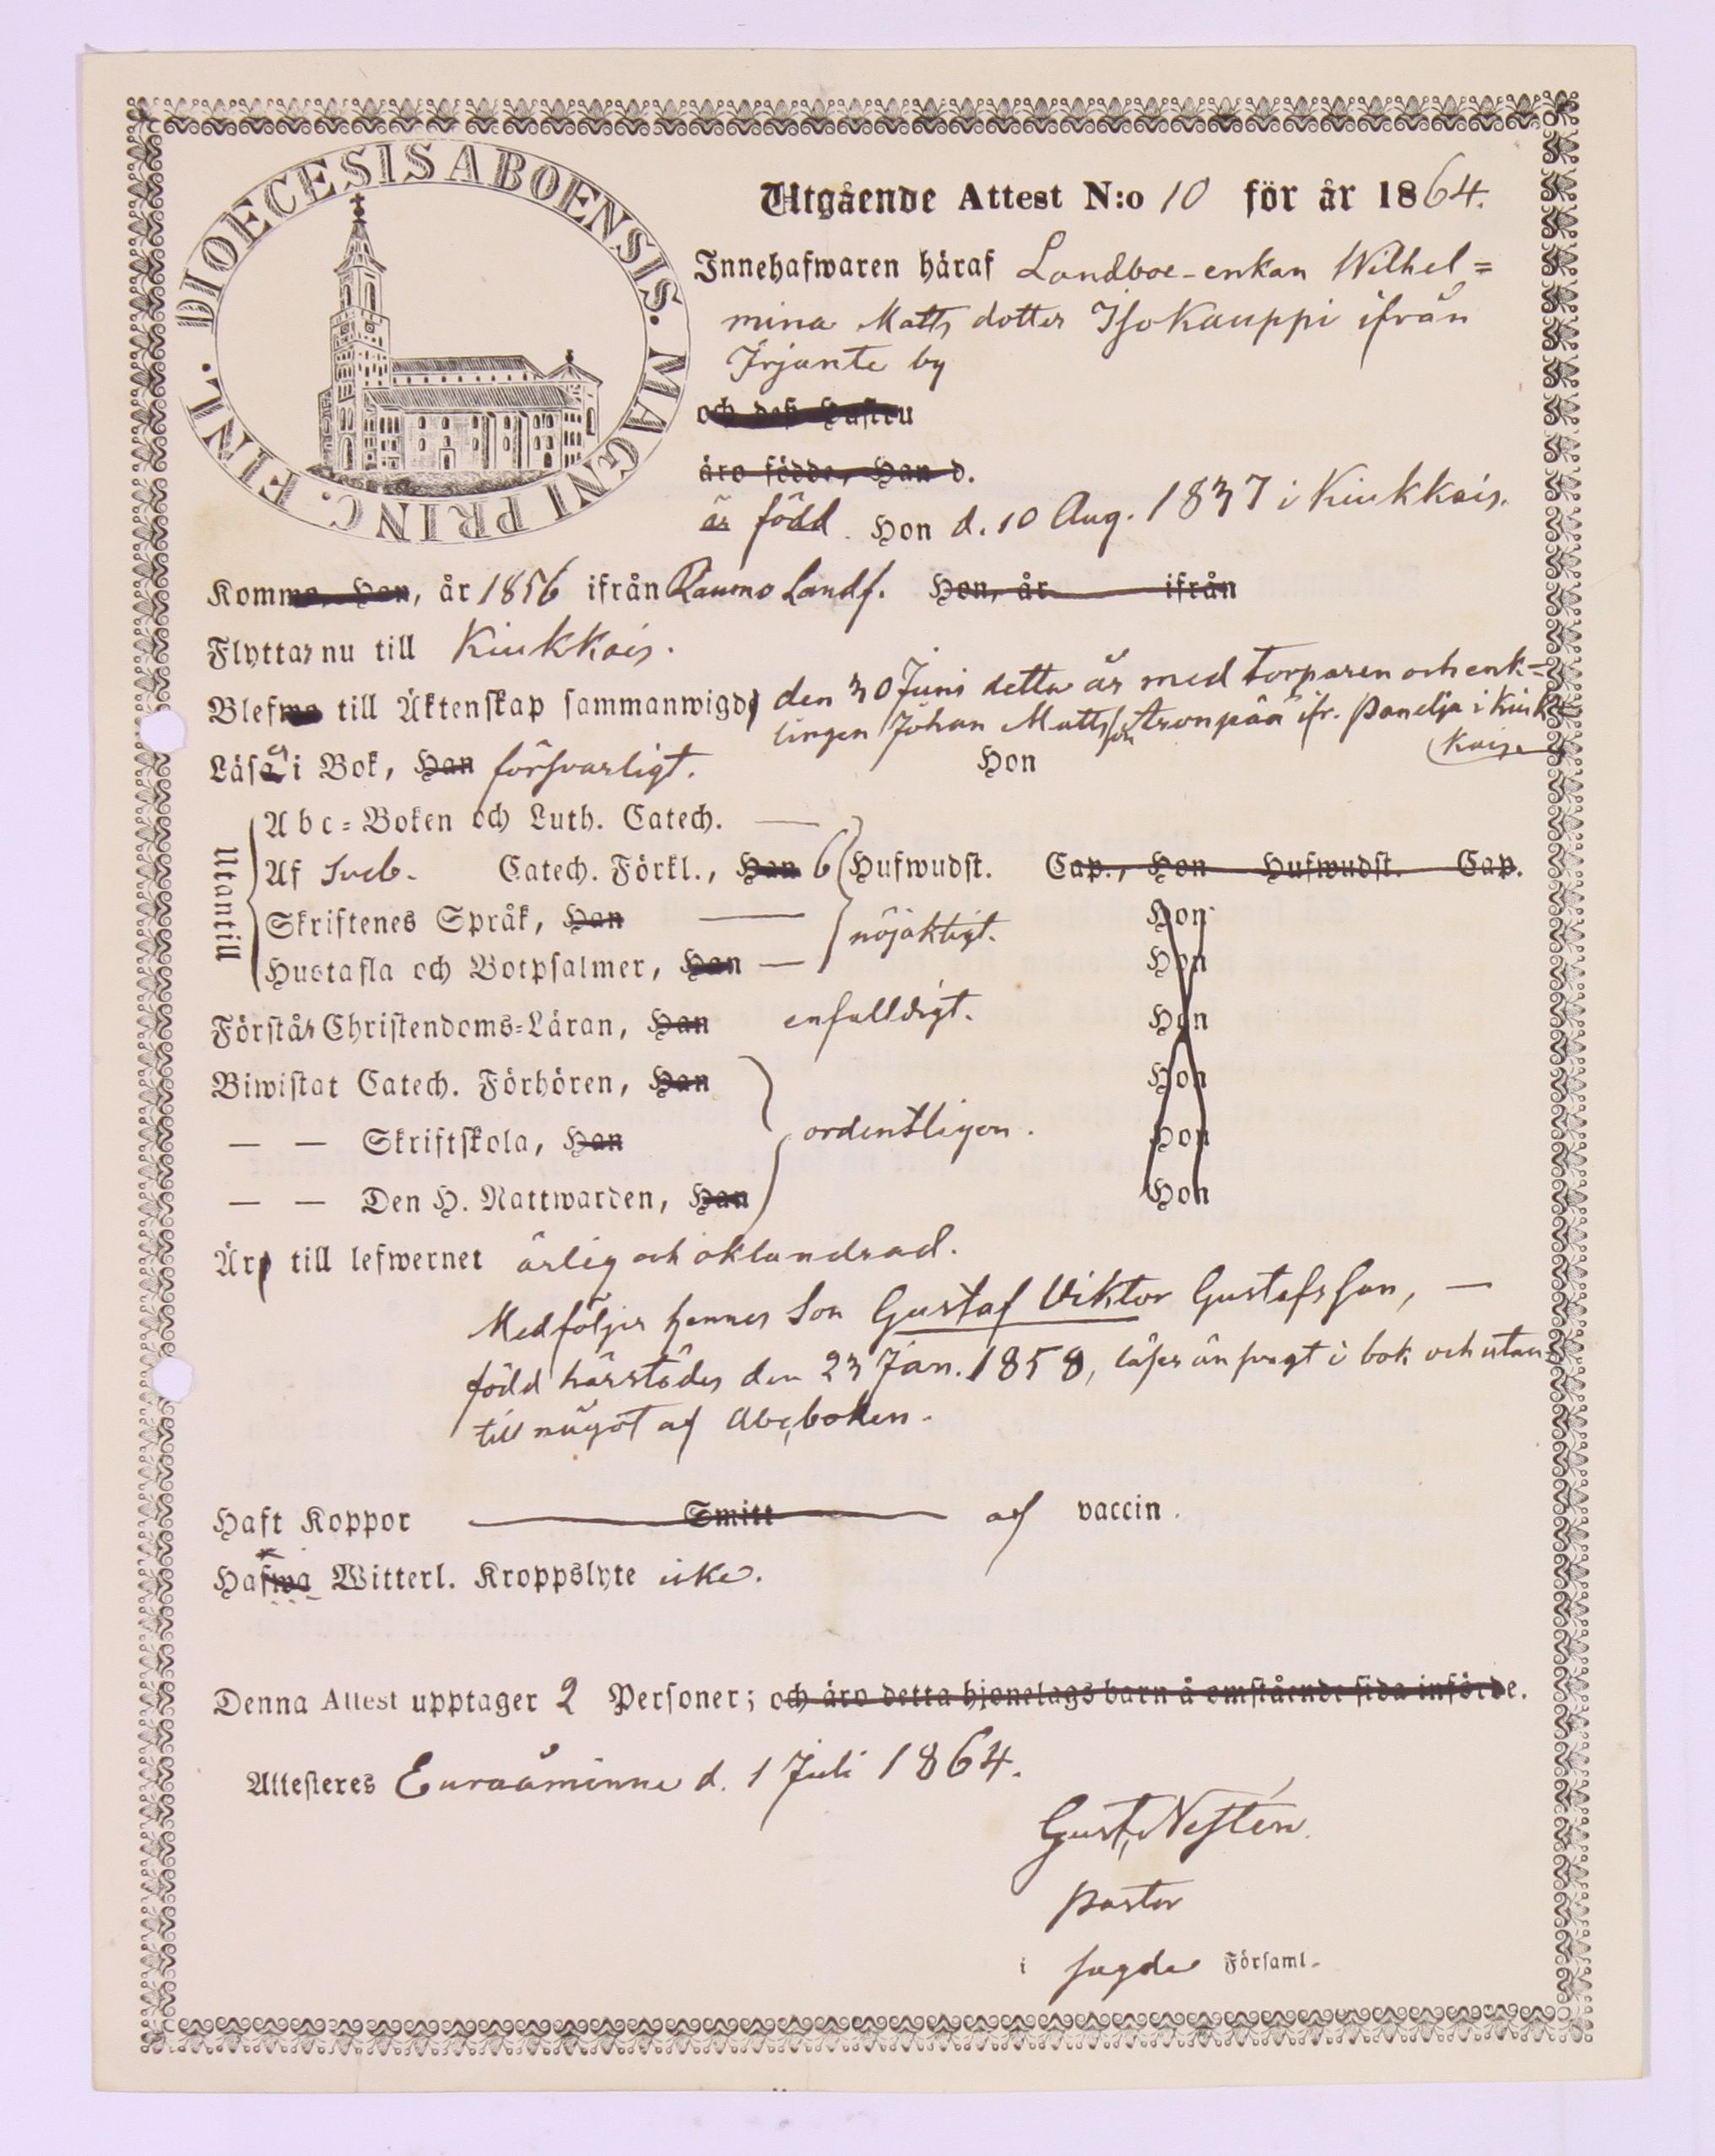 DIOECESIS ABOENSIS. MAGNI PRINC. FINL.
Utgående Attest N:o 10 för år 1864.
Innehafwaren häraf Landboe-enkan Wilhel=
mina Matts dotter Isokauppi ifrån
Irjante by
och deß Hustru
äro födde, Han d.
är född. Hon d. 10 Aug. 1837 i Kiukkais.
Komme, Han, år 1856 ifrån Raumo Landf. Hon, år ifrån
Flyttar nu till Kiukkais.
Blefwe till Äktenskap sammanwigd den 30 Juni detta år med torparen och enk=
lingen Johan Mattsson Aronpää ifr. Panelja i Kiuk
kais
Läsa i Bok, Han försvarligt. Hon
Utantill
Abc=Boken och Luth. Catech. —
Af Sveb. Catech. Förkl., Han 6 Hufwudst. Cap., Hon Hufwudst. Cap.
Skriftenes Språk, Han — nöjaktigt. Hon
Hustafla och Botpsalmer, Han — Hon
Förstår Christendoms=Läran, Han enfalldigt. Hon
Biwistat Catech. Förhören, Han Hon
— — Skriftskola, Han ordentligen. Hon
— — Den H. Nattwarden, Han Hon
Är till lefwernet ärlig och oklandrad.
Medföljer hennes Son Gustaf Viktor Gustafsson, —
född härstädes den 23 Jan. 1858, läser än svagt i bok och utan
till något af Abcboken.
Haft Koppor Smitt af vaccin.
Hafwa Witterl. Kroppslyte icke.
Denna Attest upptager 2 Personer; och äro detta hjonelags barn å omstående sida införde.
Attesteres Euraåminne d. 1 Juli 1864.
Gust. Nestén.
Pastor
i sagde Församl.